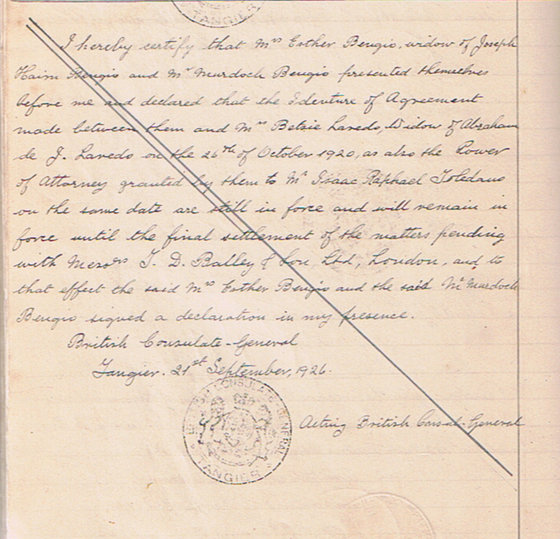 TANGIER
I hereby certify that Mrs Esther Bengio, widow of Joseph
Haim Bengio and Mr Murdoch Bengio presented themselves
before me and declared that the Identure of Agreement
made between them and Mrs Betsie Laredo, Widow of Abraham
de J. Laredo on the 26th of October 1920, as also the Power
of Attorney granted by them to Mr Isaac Raphael Toledano
on the same date are still in force and will remain in
force until the final settlement of the matters pending
with Messrs J. D. & Son Ltd, London, and to
that effect the said Mrs Esther Bengio and the said Mr Murdoch
Bengio signed a declaration in my presence.
British Consulate-General
Tangier. 21st September, 1926.
Acting British Consul-General
BRITISH CONSULATE-GENERAL
TANGIER